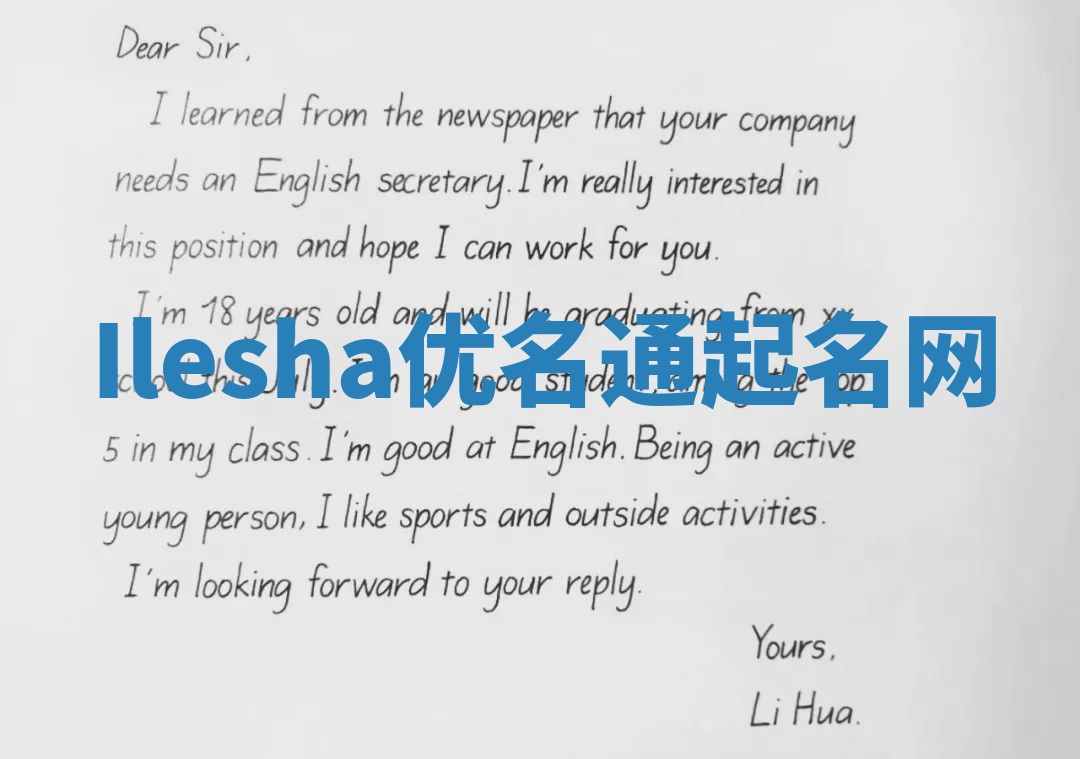 Dear Sir,
I learned from the newspaper that your company
needs an English secretary. I'm really interested in
this position and hope I can work for you.
I'm 18 years old and will be graduating from xx
Ilesha优名通起名网
this July. I'm a good student, among the top
5 in my class. I'm good at English. Being an active
young person, I like sports and outside activities.
I'm looking forward to your reply.
Yours,
Li Hua.